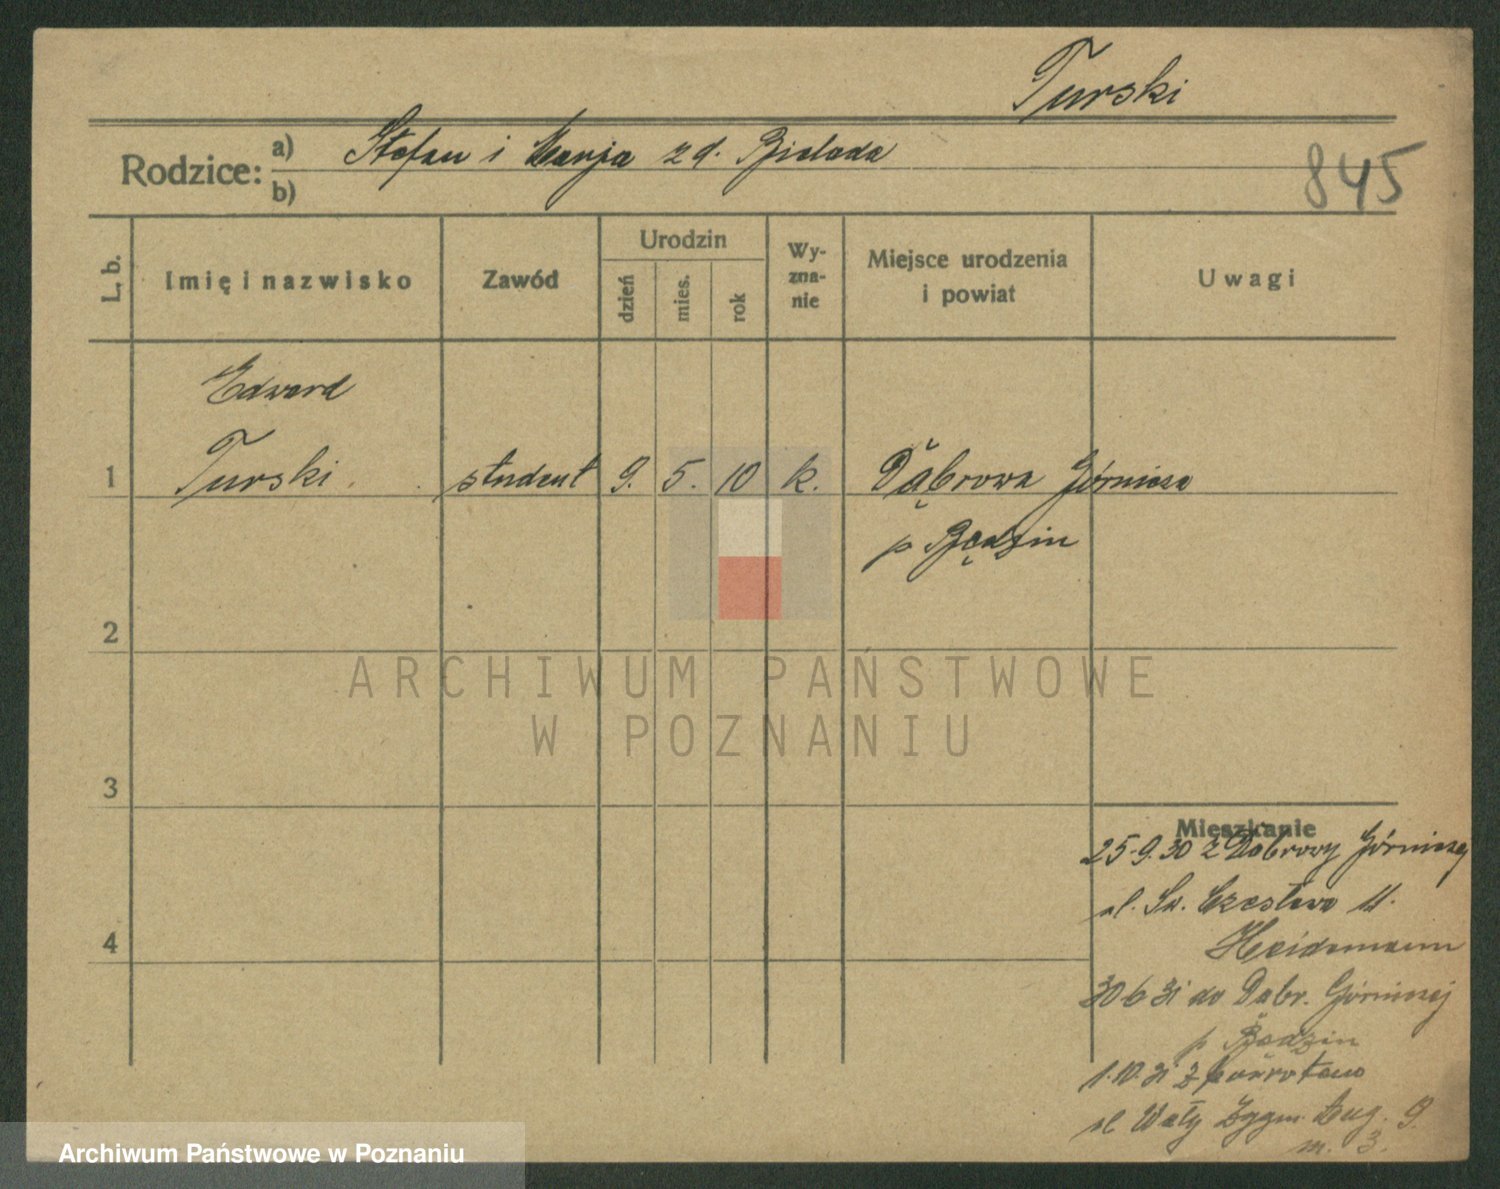 Turski
Rodzice: a) Stefan i Marja z d. Bielada
b)
845
L. b.
Imię i nazwisko
Zawód
Urodzin
dzień
mies.
rok
Wy-
zna-
nie
Miejsce urodzenia
i powiat
Uwagi
Edward
1 Turski. student 9. 5. 10 k. Dąbrowa Górnicza
p Będzin
2
3
4
Mieszkanie
25.9.30 z Dąbrowy Górniczej
ul. Św. Czesława 11.
Heidemann
30 6 31 do Dąbr. Górniczej
p Będzin
1.10.31 z powrotem
ul Wały Zygm. Aug. 9
m. 3.
ARCHIWUM PAŃSTWOWE
W POZNANIU
Archiwum Państwowe w Poznaniu